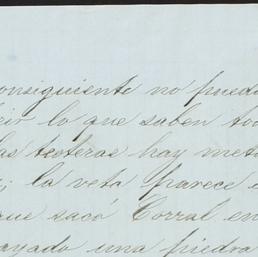 onsiguiente no pued
cir lo que saben tod
as teteras hay met
; la veta parece e
que sacó Corral en
ayado una piedra